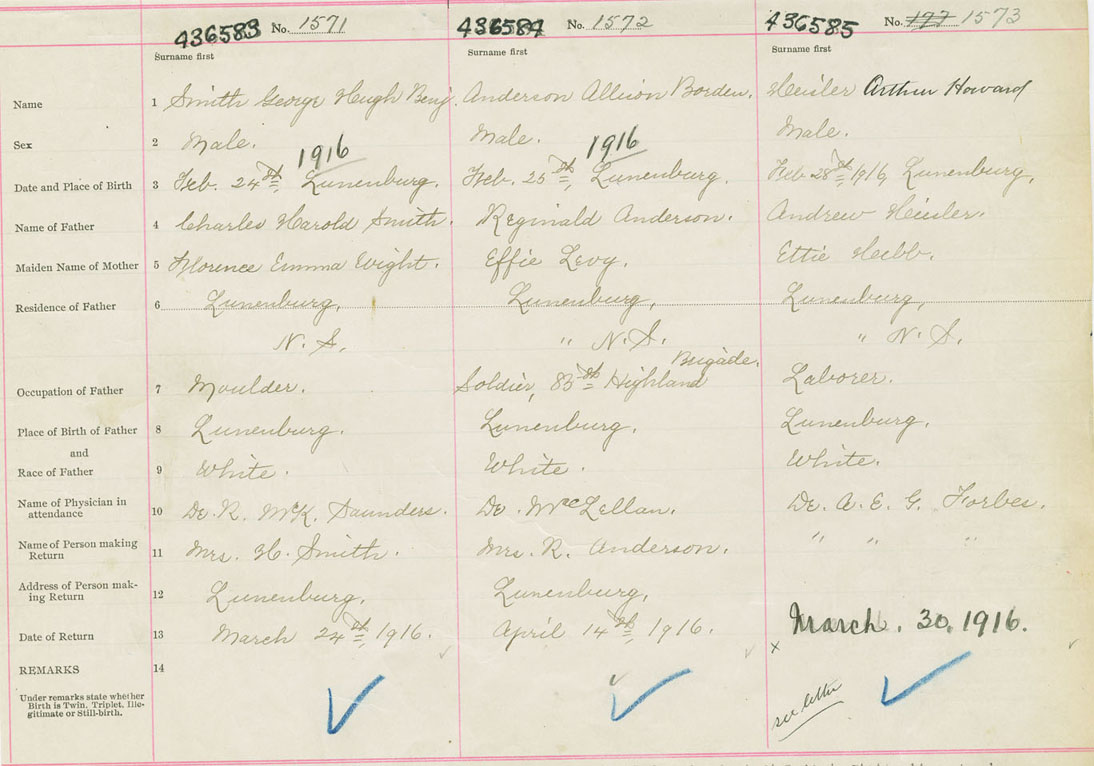 436583 No. 1571 436584 No. 1572 436585 No. 177 1573
Surname first Surname first Surname first
Name 1 Smith George Hugh Benj. Anderson Allison Borden. Heisler Arthur Howard
Sex 2 Male. Male. Male.
1916 1916
Date and Place of Birth 3 Feb. 24th, Lunenburg. Feb. 25th, Lunenburg. Feb 28th 1916, Lunenburg,
Name of Father 4 Charles Harold Smith. Reginald Anderson. Andrew Heisler.
Maiden Name of Mother 5 Florence Emma Wight. Effie Levy. Ettie Hebb.
Residence of Father 6 Lunenburg, Lunenburg, Lunenburg,
N. S. " N. S. " N. S.
Brigade.
Occupation of Father 7 Moulder. Soldier, 85th Highland Laborer.
Place of Birth of Father 8 Lunenburg. Lunenburg. Lunenburg.
and
Race of Father 9 White. White. White.
Name of Physician in
attendance 10 Dr. R. McK. Saunders. Dr. McLellan. Dr. A. E. G. Forbes.
Name of Person making
Return 11 Mrs. H. Smith. Mrs. R. Anderson. " " "
Address of Person mak-
ing Return 12 Lunenburg, Lunenburg,
Date of Return 13 March 24th, 1916. April 14th, 1916. March. 30. 1916.
x
REMARKS 14
Under remarks state whether
Birth is Twin, Triplet, Ille-
gitimate or Still-birth.
see letter